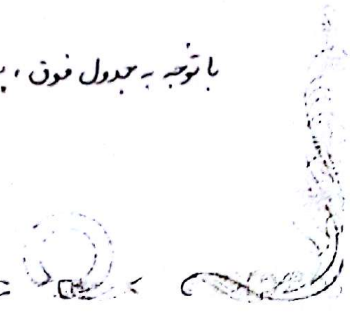 با توجه به جدول فوق ،